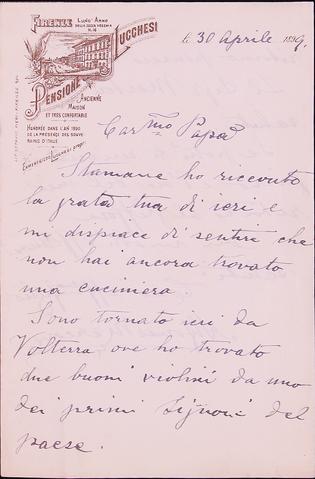 FIRENZE
LUNG' ARNO
DELLA ZECCA VECCHIA
N. 16
PENSIONE LUCCHESI
ANCIENNE
MAISON
ET TRÈS CONFORTABLE
HONORÉE DANS L'AN 1890
DE LA PRÉSENCE DES SOUVE
RAINS D'ITALIE
li 30 Aprile 1899.
Car.mo Papà
Stamane ho ricevuto
la grata tua di ieri e
mi dispiace di sentire che
non hai ancora trovato
una cuciniera.
Sono tornato ieri da
Volterra ove ho trovato
due buoni violini da uno
dei primi Signori del
paese.